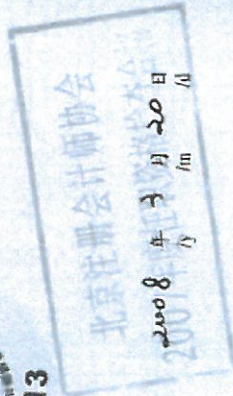 北京注册会计师协会
2007年度任职资格检查合格
2008 年 3 月 20 日
/y /m /d
13